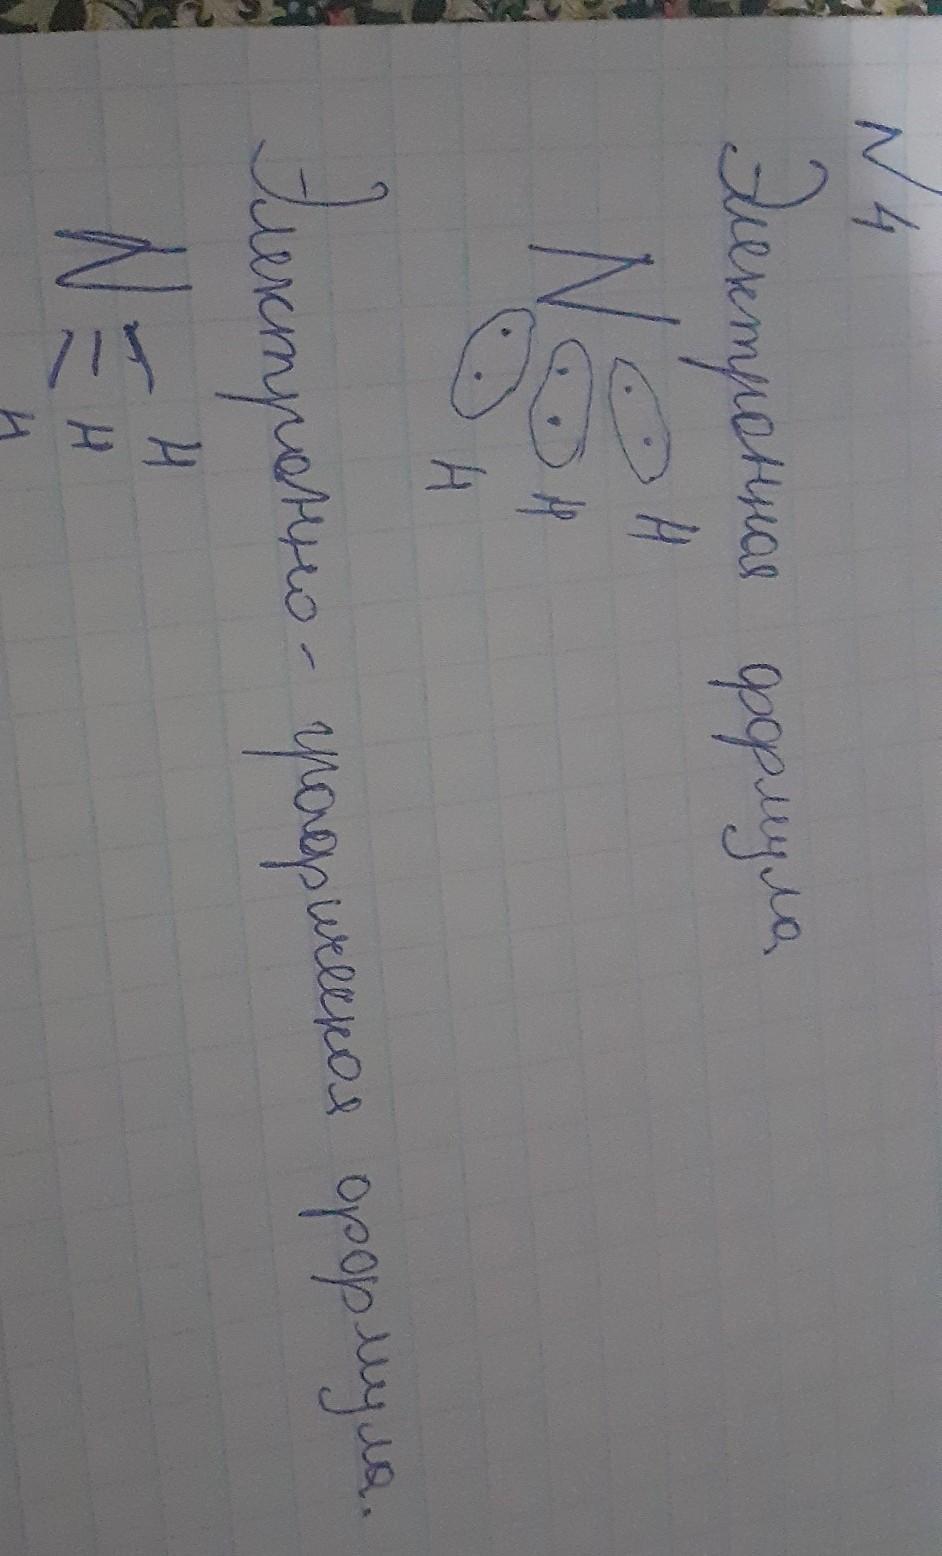 N4
Электронная формула
H
N H
H
Электронно-графическая формула.
H
N ≡ H
H